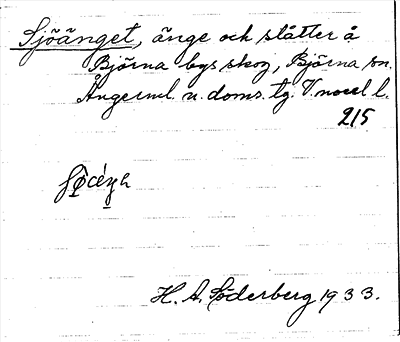 Sjöänget, änge och slåtter å
Björna bys skog, Björna sn.
Ångerml. n. doms. tg. V.norrl l.
215
H. A. Söderberg 1933.